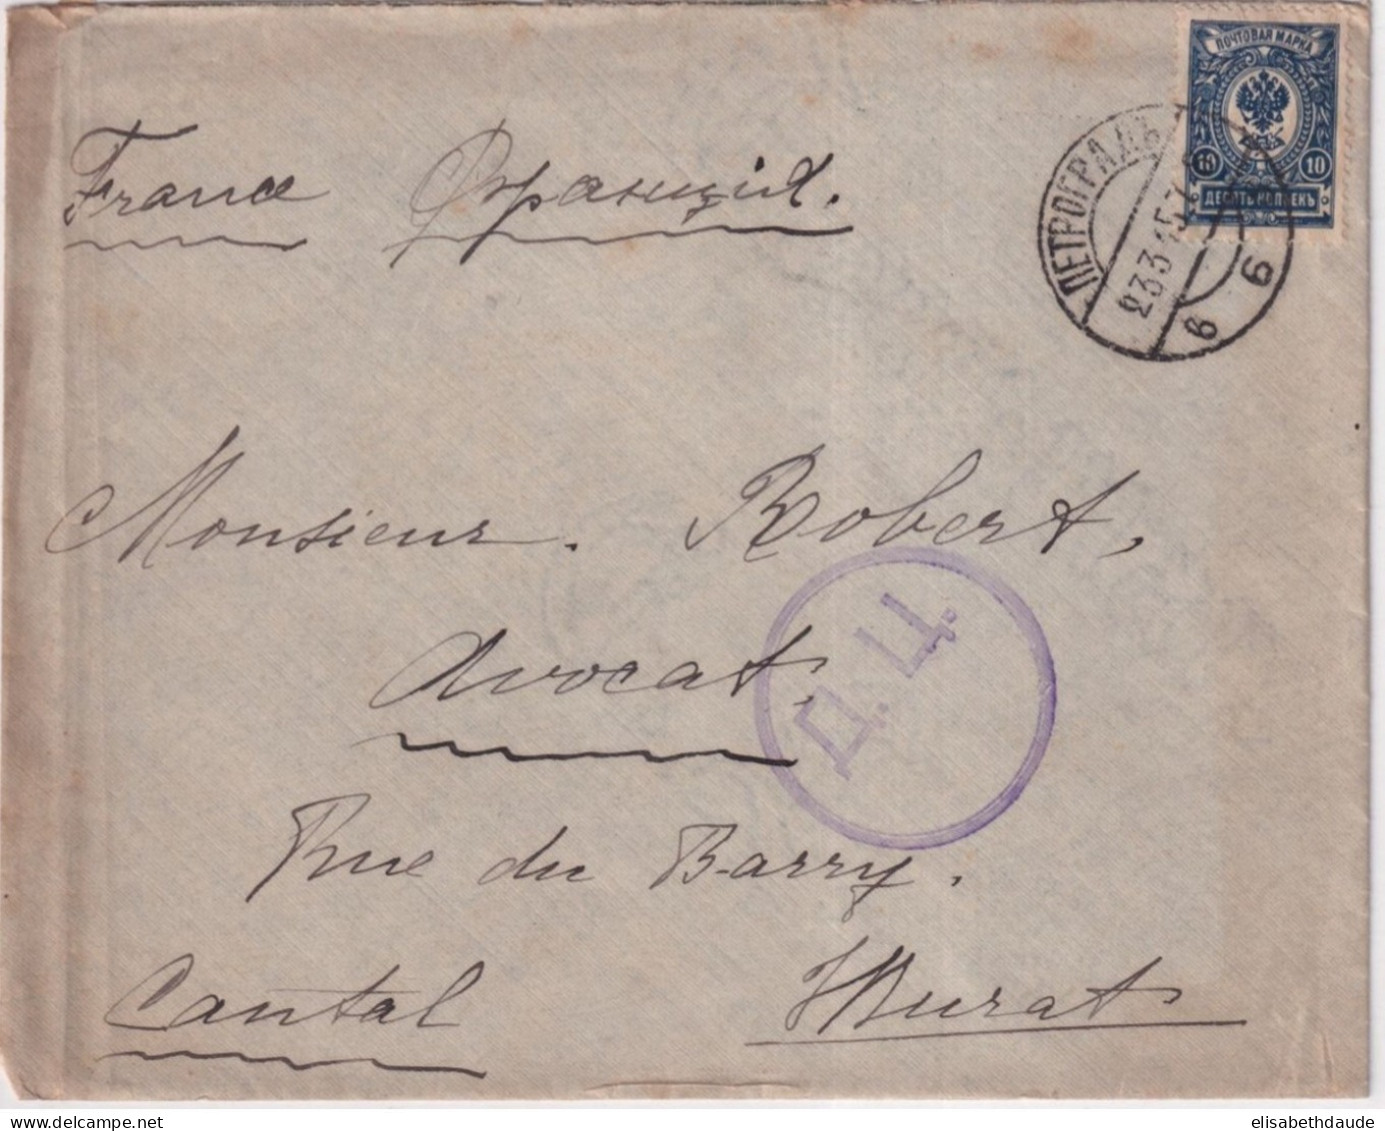 ПОЧТОВАЯ МАРКА
10 10
ДЕСЯТЬ КОПѢЕКЪ
ПЕТРОГРАДЪ
23 3 15
6 в
France Франція.
Monsieur. Robert,
Avocat,
Д.Ц.
Rue du Barry.
Cantal Murat
elisabethdaude